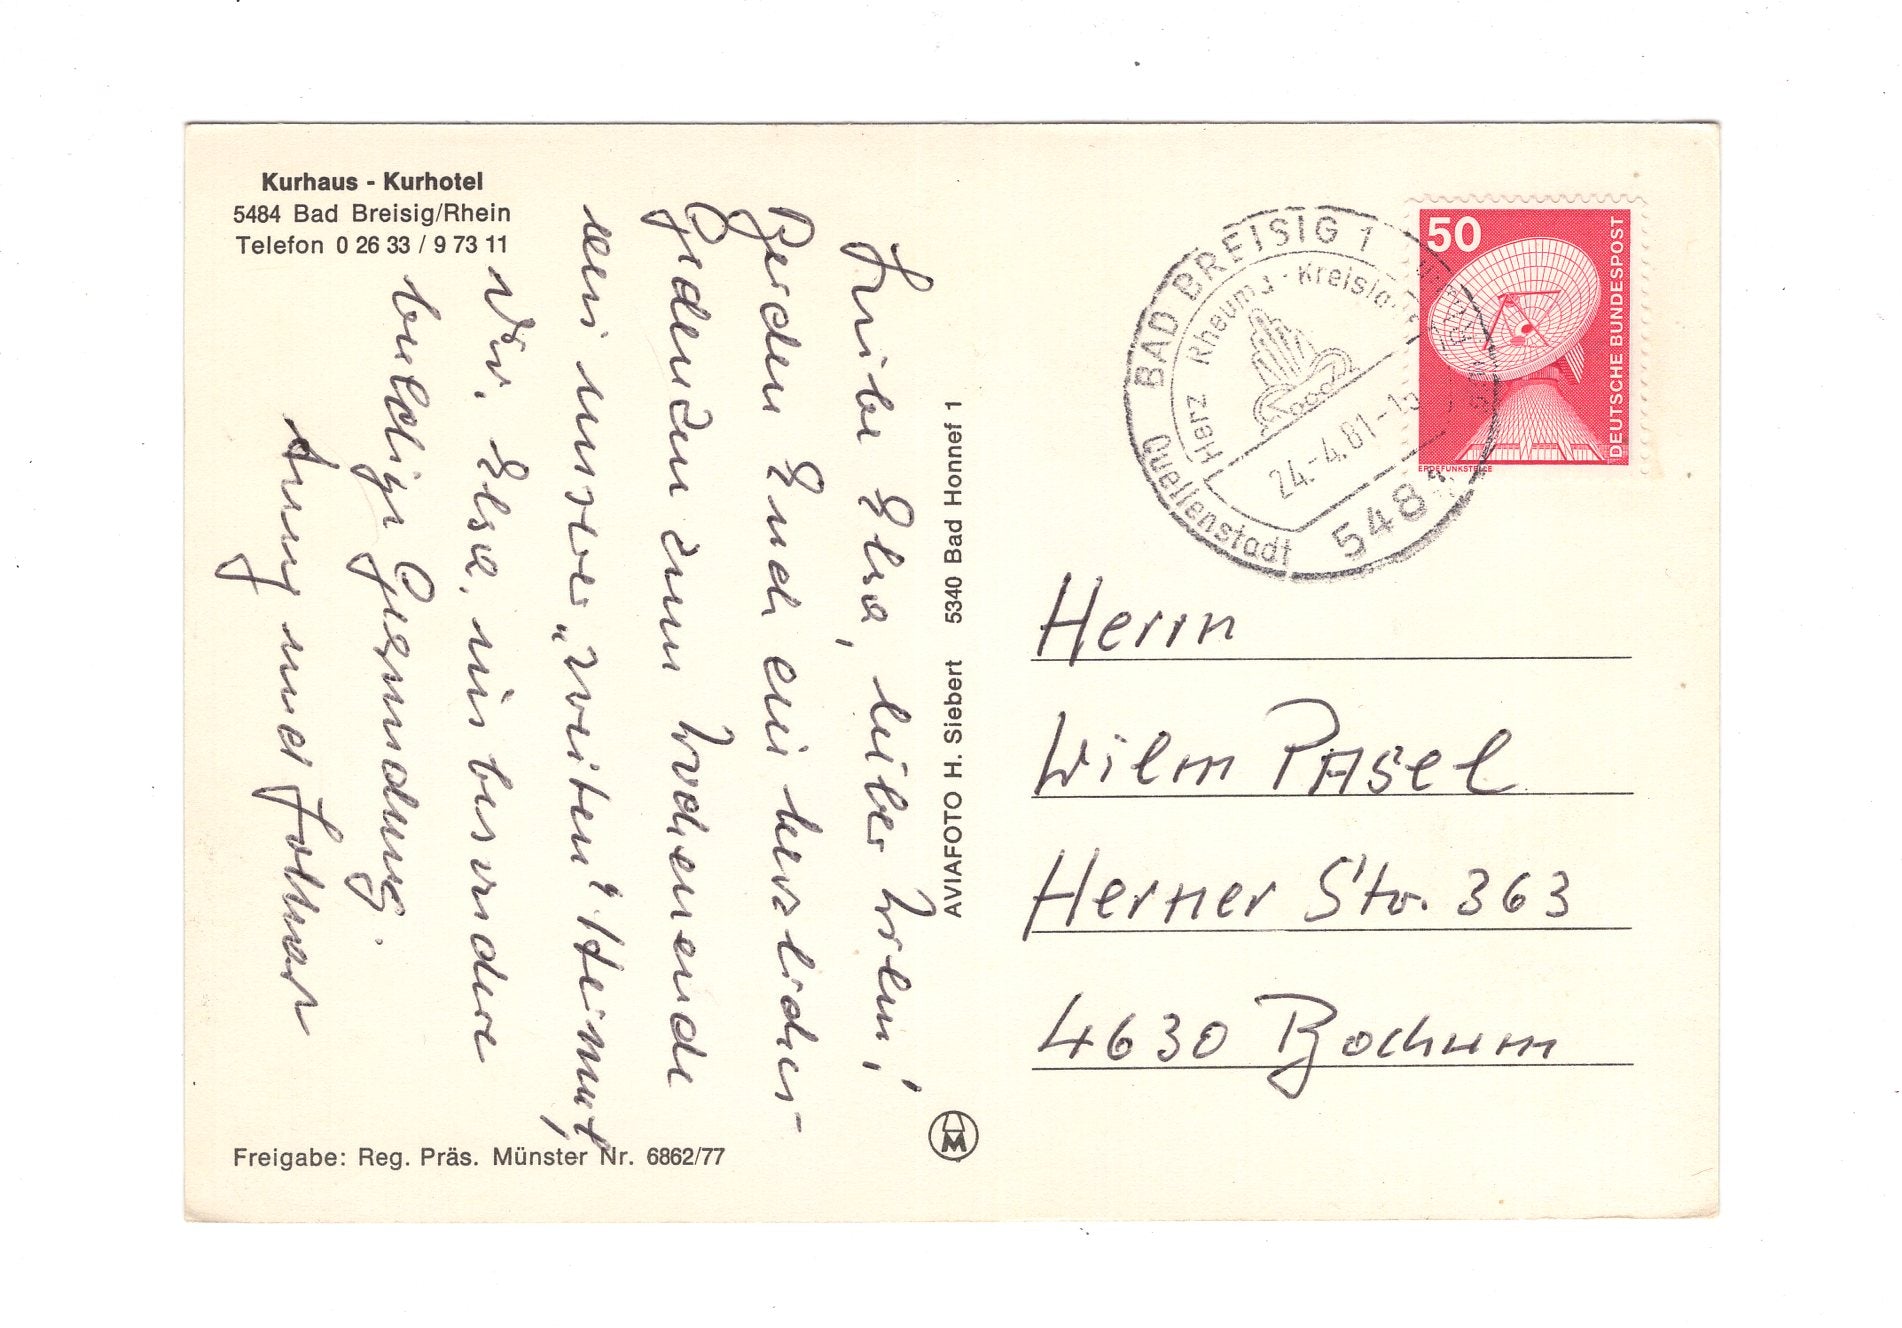 Kurhaus - Kurhotel
5484 Bad Breisig/Rhein
Telefon 0 26 33 / 9 73 11
Liebe Elsa, lieber Wilm!
Beiden Euch ein herzliches
Gedenken zum Wochenende
aus unserer „zweiten“ Heimat,
Dir, Elsa, insbesondere
baldige Gesundung.
Anny und Lothar
Freigabe: Reg. Präs. Münster Nr. 6862/77
AVIAFOTO H. Siebert 5340 Bad Honnef 1
M
BAD BREISIG 1
Herz Rheuma - Kreislauf
24.-4.81-15
Quellenstadt
5484
50
DEUTSCHE BUNDESPOST
ERDEFUNKSTELLE
Herrn
Wilm PASel
Herner Str. 363
4630 Bochum